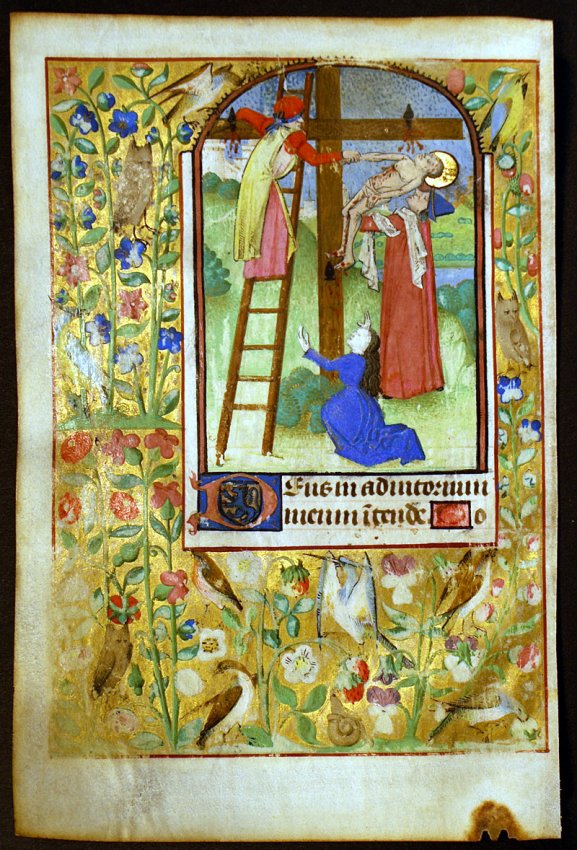 Deus in adiutorium
meum ītende. Do